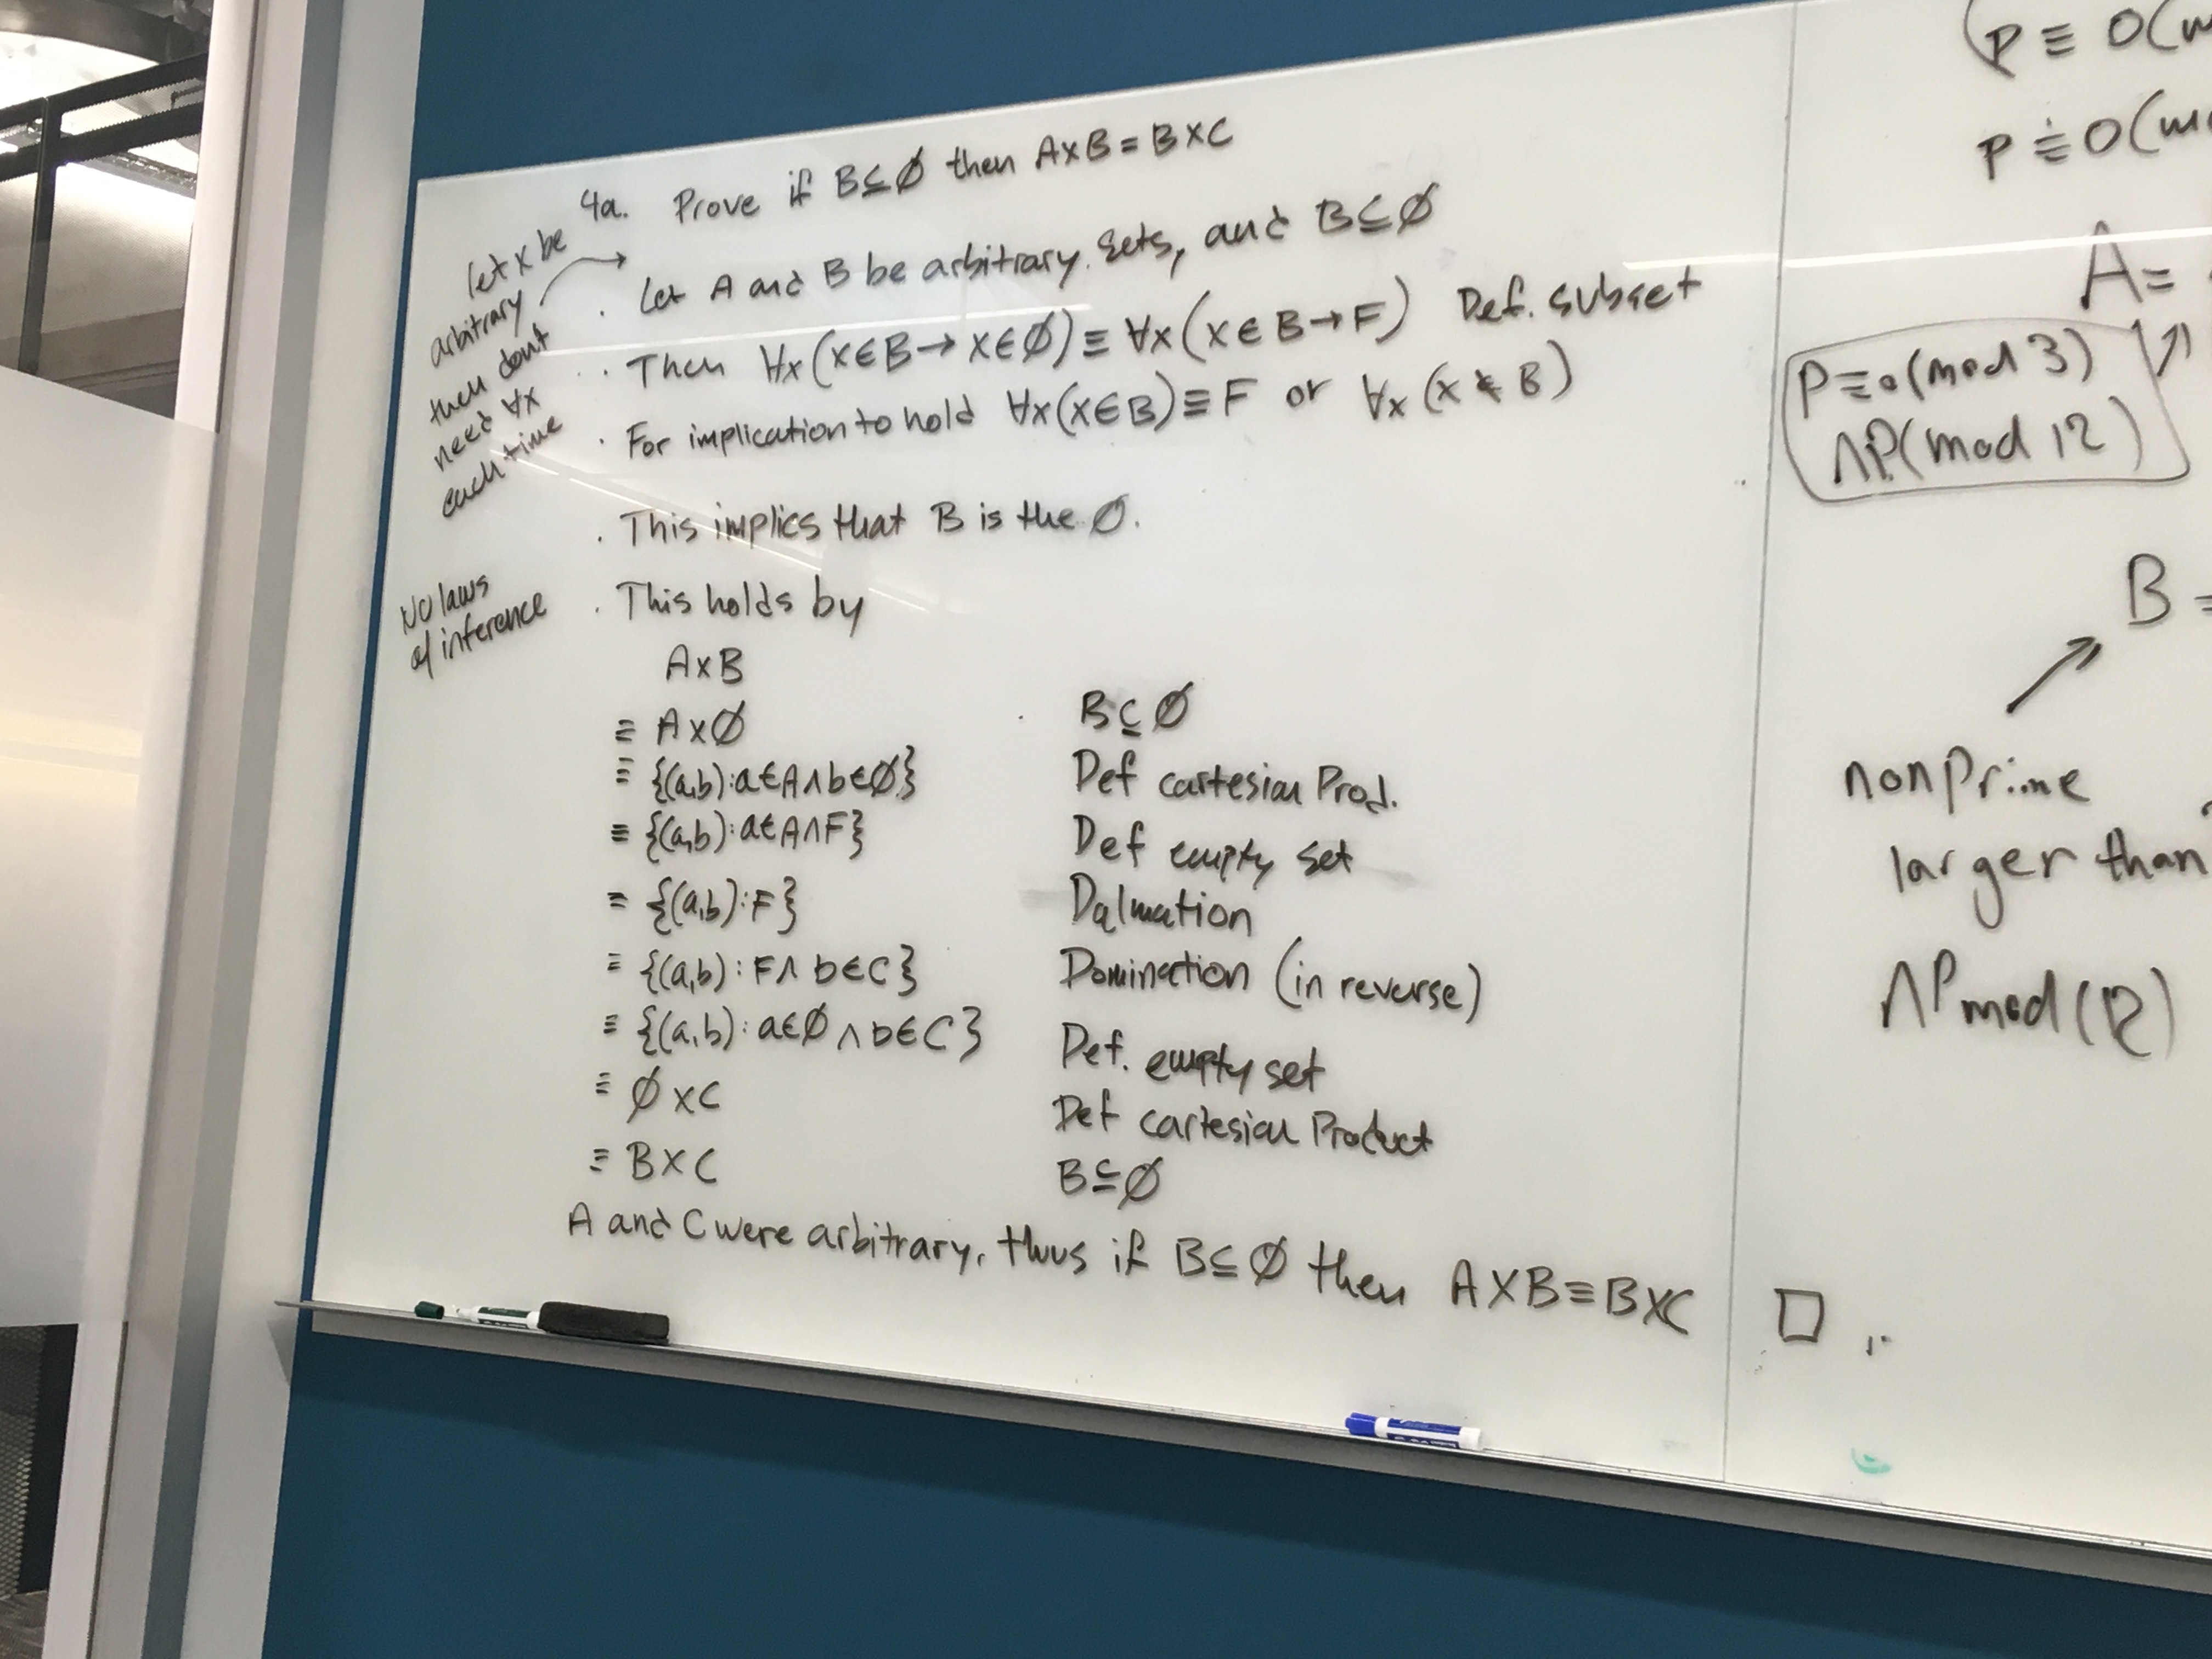 4a. Prove if B⊆∅ then A×B = B×C
let x be
arbitrary
then dont
need ∀x
each time
· Let A and B be arbitrary sets, and B⊆∅
· Then ∀x(x∈B→x∈∅)≡∀x(x∈B→F) Def. subset
· For implication to hold ∀x(x∈B)≡F or ∀x(x∉B)
· This implies that B is the ∅.
No laws
of inference
· This holds by
A×B
≡ A×∅ B⊆∅
≡ {(a,b):a∈A∧b∈∅} Def cartesian Prod.
≡ {(a,b):a∈A∧F} Def empty set
= {(a,b):F} Dalmation
≡ {(a,b):F∧b∈C} Domination (in reverse)
≡ {(a,b):a∈∅∧b∈C} Def. empty set
≡ ∅×C Def cartesian Product
≡ B×C B⊆∅
A and C were arbitrary, thus if B⊆∅ then A×B≡B×C □
(p≡0(
p≡0(
A=
P≡0(mod 3)
∧P(mod 12)
B=
nonprime
larger than
∧Pmod(12)